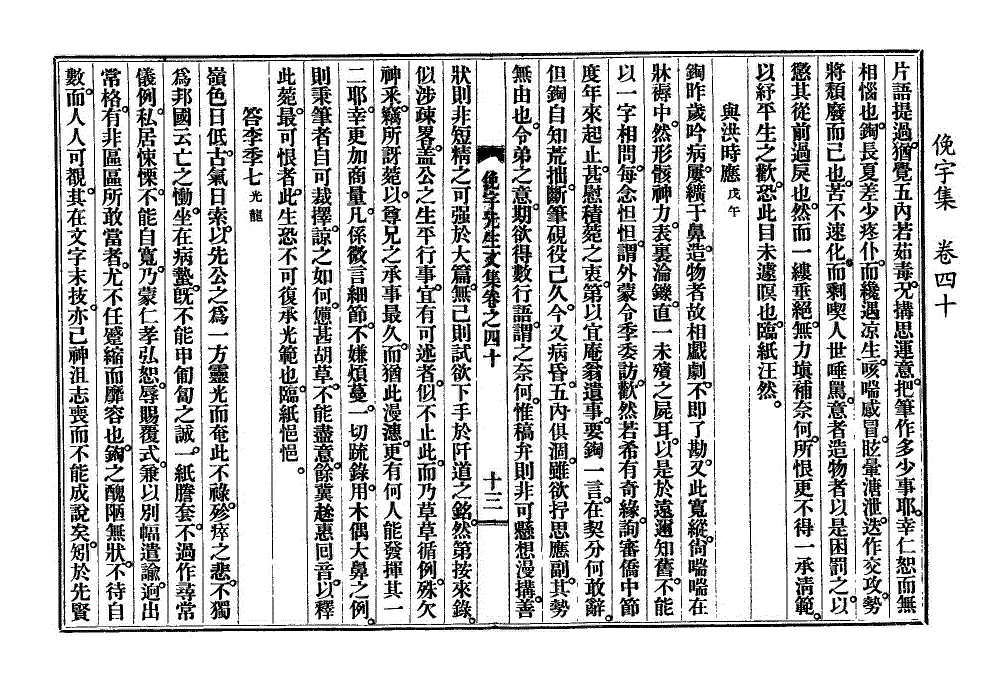 俛宇集　卷四十
片語提過。猶覺五內若茹毒。況搆思運意。把筆作多少事耶。幸仁恕而無
相惱也。鋾。長夏差少疼仆。而纔遇凉生。咳喘感冒。眩暈溏泄。迭作交攻。勢
將頹廢而已也。苦不速化。而剩喫人世唾罵。意者造物者以是困罰之。以
懲其從前過戾也。然而一縷垂絕。無力塡補奈何。所恨更不得一承淸範。
以紓平生之歡。恐此目未遽瞑也。臨紙汪然。
與洪時應 戊午
鋾昨歲吟病。屢纊于鼻。造物者故相戲劇。不卽了勘。又此寬縱。尙喘喘在
牀褥中。然形骸神力。表裏淪鑠。直一未殯之屍耳。以是於遠邇知舊。不能
以一字相問。每念怛怛。謂外蒙令季委訪。歡然若希有奇緣。詢審僑中節
度年來起止。甚慰積菀之衷。第以宜庵翁遺事。要鋾一言。在契分何敢辭。
但鋾自知荒拙。斷筆硯役已久。今又病昏。五內俱涸。雖欲抒思應副。其勢
無由也。令弟之意。期欲得數行語。謂之奈何。惟稿弁則非可懸想漫搆。善
俛宇先生文集卷之四十　十三
狀則非短精之可强於大篇。無已則試欲下手於阡道之銘。然第按來錄。
似涉疎畧。盖公之生平行事。宜有可述者。似不止此。而乃草草循例。殊欠
神采。竊所訝菀。以尊兄之承事最久。而猶此漫漶。更有何人能發揮其一
二耶。幸更加商量。凡係微言細節。不嫌煩蔓。一切疏錄。用木偶大鼻之例。
則秉筆者自可裁擇。諒之如何。憊甚胡草。不能盡意。餘冀趂惠回音。以釋
此菀。最可恨者。此生恐不可復承光範也。臨紙悒悒。
答李季七 光龍
嶺色日低。古氣日索。以先公之爲一方靈光而奄此不祿。殄瘁之悲。不獨
爲邦國云亡之慟。坐在病蟄。旣不能申匍匐之誠。一紙謄套。不過作尋常
儀例。私居悚慄。不能自寬。乃蒙仁孝弘恕。辱賜覆式。兼以別幅遣諭。逈出
常格。有非區區所敢當者。尤不任蹙縮而靡容也。鋾之醜陋無狀。不待自
數而。人人可覩。其在文字末技。亦已神沮志喪而不能成說矣。矧於先賢